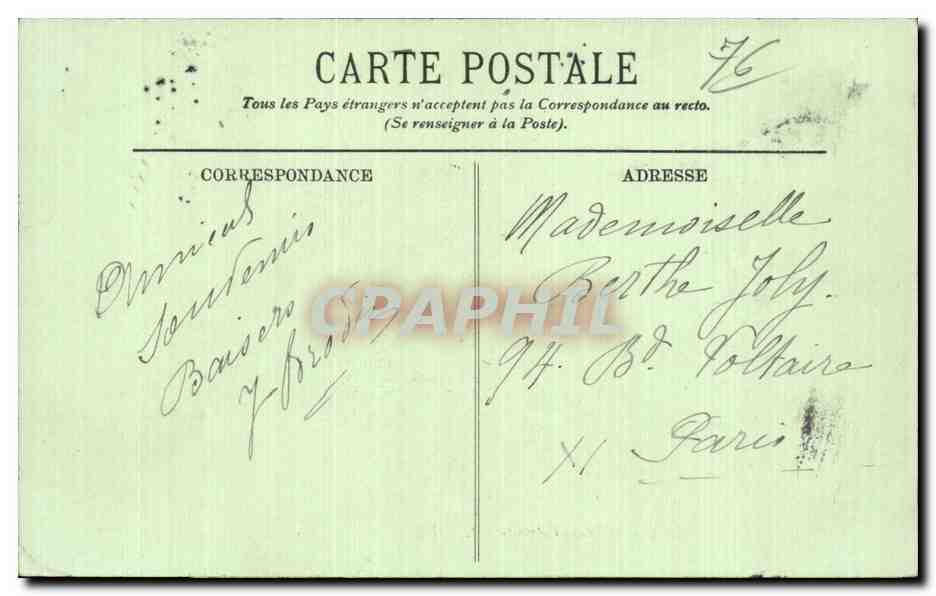 CARTE POSTALE
76
Tous les Pays étrangers n'acceptent pas la Correspondance au recto.
(Se renseigner à la Poste).
CORRESPONDANCE
Amical
Souvenir
Baisers
ADRESSE
Mademoiselle
Berthe Joly.
94. Bd. Voltaire
XI Paris
CPAPHIL